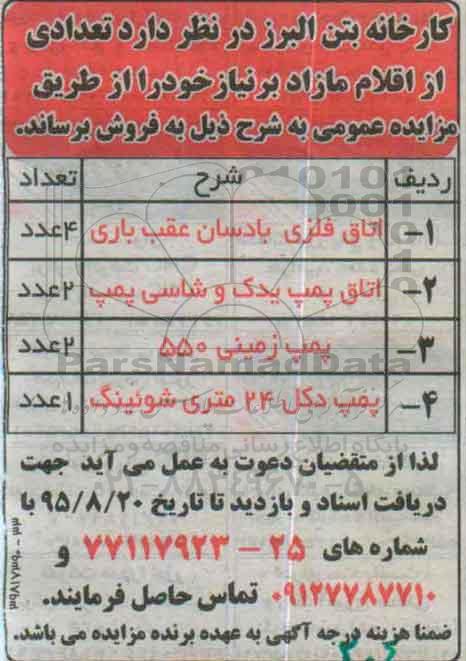 کارخانه بتن البرز در نظر دارد تعدادی
از اقلام مازاد برنیاز خود را از طریق
مزایده عمومی به شرح ذیل به فروش برساند.
ردیف شرح تعداد
۱- اتاق فلزی بادسان عقب باری ۴عدد
۲- اتاق پمپ یدک و شاسی پمپ ۲عدد
۳- پمپ زمینی ۵۵۰ ۲عدد
۴- پمپ دکل ۲۴ متری شوئینگ ۱عدد
ParsNamadData
پایگاه اطلاع رسانی مناقصه و مزایده
لذا از متقضیان دعوت به عمل می آید جهت
دریافت اسناد و بازدید تا تاریخ ۹۵/۸/۲۰ با
شماره های ۲۵ – ۷۷۱۱۷۹۲۳ و
۰۹۱۲۷۷۸۷۷۱۰ تماس حاصل فرمایند.
ضمنا هزینه درجه آگهی به عهده برنده مزایده می باشد.